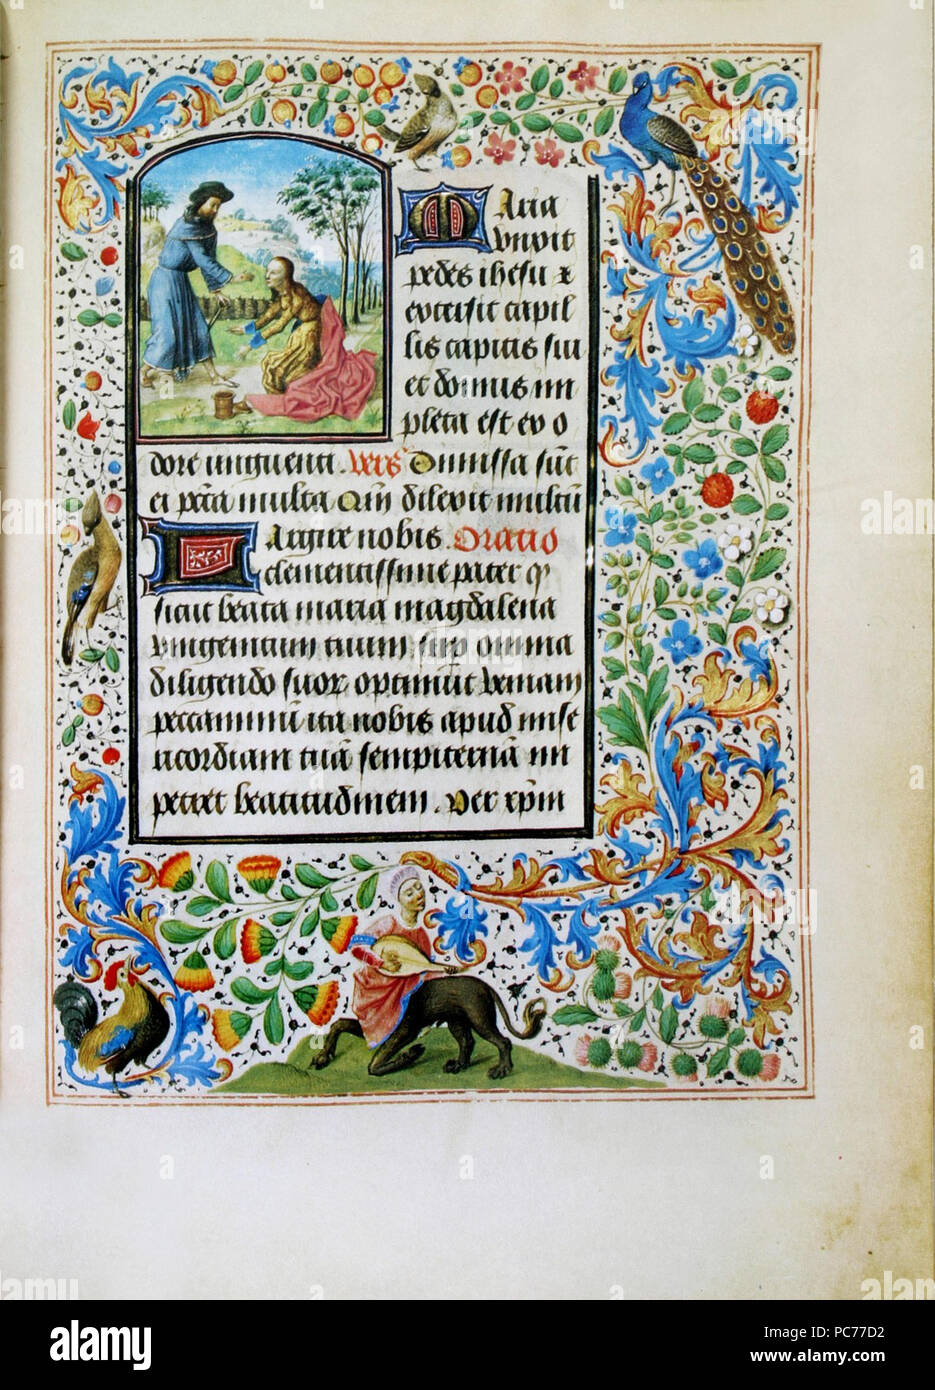 Maria
vnxit
pedes ihesu &
extersit capil
lis capitis sui
et domus im
pleta est ex o
dore unguenti. Vers Dimissa sūt
ei pcta multa Qm̄ dilexit multū
Largire nobis. Oratio
clementissime pater q
sicut beata maria magdalena
vnigenitum tuum sup omnia
diligendo suor optinuit veniam
peccaminū ita nobis apud mise
ricordiam tuā sempiternā im
petret beatitudinem. Per xpm
alamy
alamy
Image ID: PC77D2
www.alamy.com